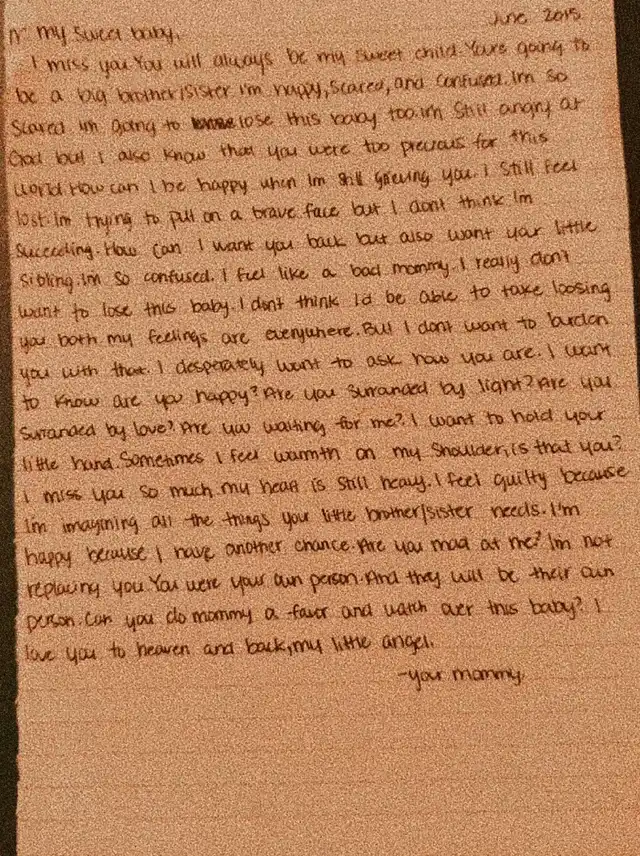 my sweet baby, June 2015
I miss you. You will always be my sweet child. Youre going to
be a big brother/sister I'm happy, scared, and confused. Im so
scared im going to lose this baby too. Im still angry at
God but I also know that you were too precious for this
world. How can I be happy when Im still grieving you. I still feel
lost. Im trying to pull on a brave face but I dont think Im
succeeding. How can I want you back but also want your little
sibling. Im so confused. I feel like a bad mommy. I really don't
want to lose this baby. I don't think I'd be able to take loosing
you both my feelings are everywhere. But I dont want to burden
you with that. I desperately want to ask how you are. I want
to know are you happy? Are you surranded by light? Are you
surranded by love? Are you waiting for me? I want to hold your
little hand. Sometimes I feel warmth on my shoulder, is that you?
I miss you so much my heart is still heavy. I feel guilty because
I'm imagining all the things your little brother/sister needs. I'm
happy because I have another chance. Are you mad at me? Im not
replacing you. You were your own person. And they will be their own
person. Can you do mommy a favor and watch over this baby? I
love you to heaven and back, my little angel.
-your mommy.